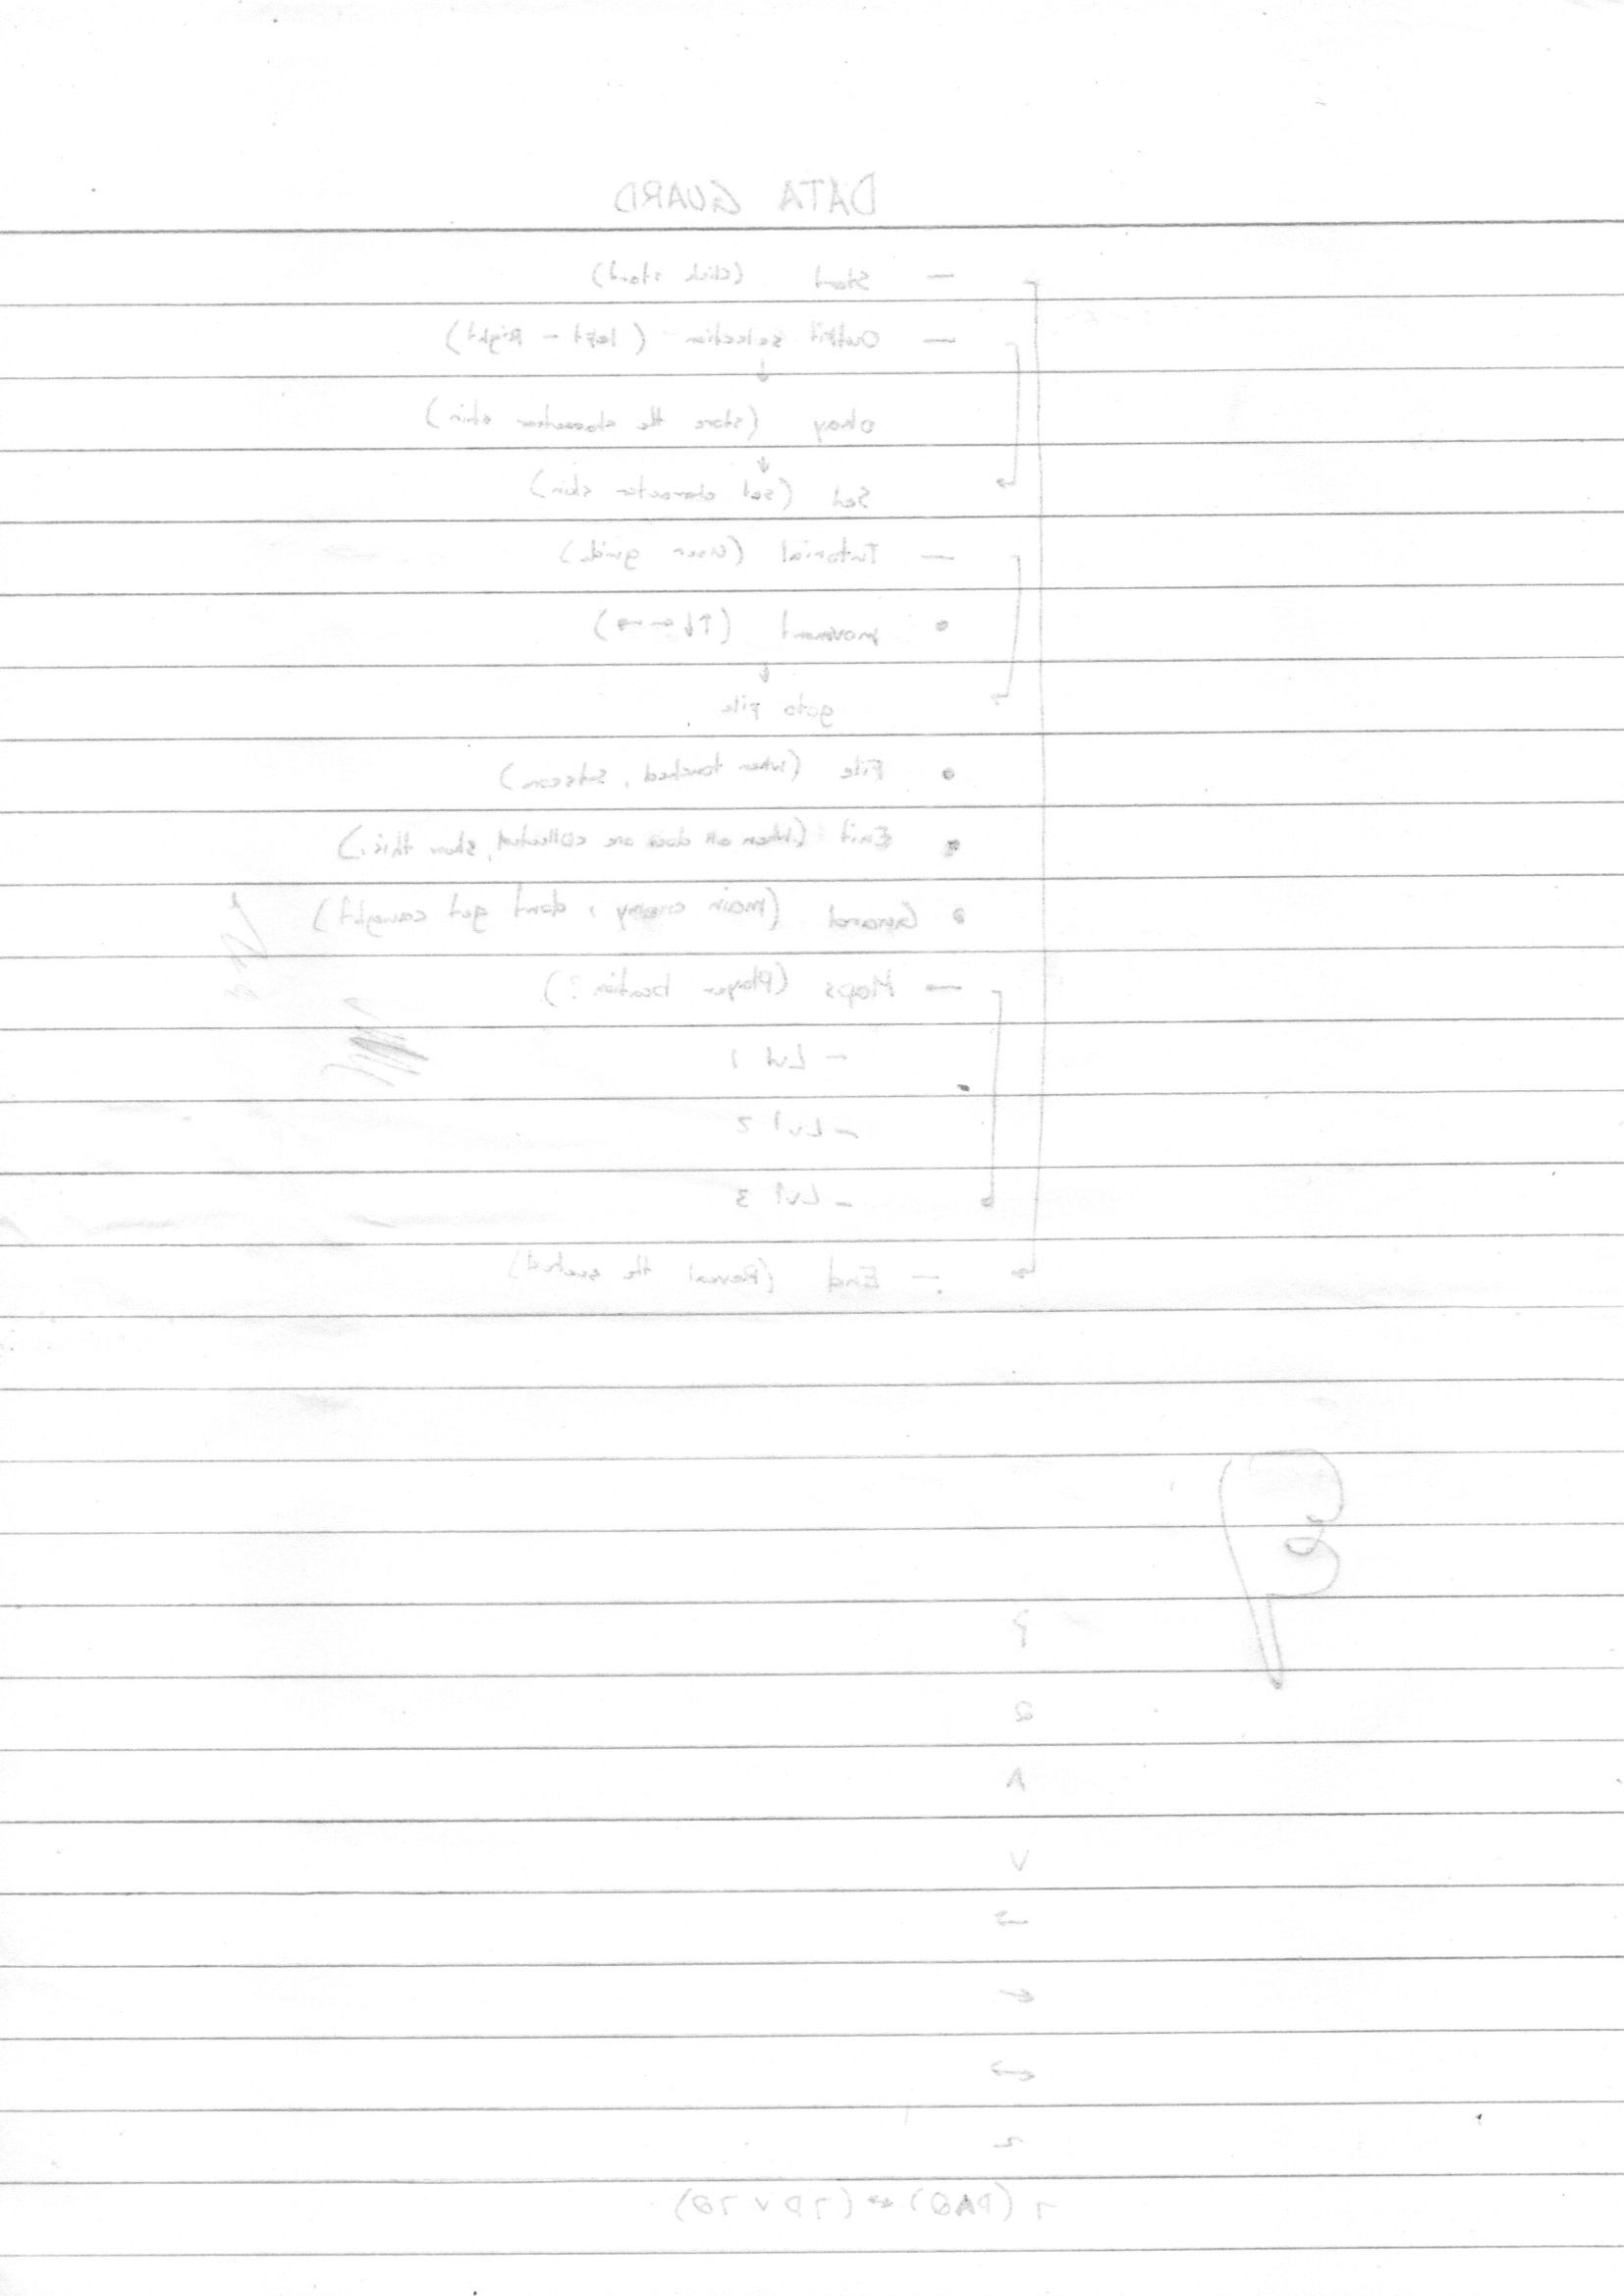 DATA GUARD
— Start (click start)
— Outfit selection (left – Right)
↓
okay (store the character skin)
↓
Set (set character skin)
— Tutorial (user guide)
• movment (↑↓←→)
↓
goto File
• File (when touched,
• Exit (when all docs are collected, show this.)
• Guard (main enemy, dont get caught)
— Maps (Player location?)
– Lvl 1
– Lvl 2
– Lvl 3
— End (Reveal the
β
P
Q
∧
∨
¬
→
↔
¬(P∧Q) ↔ (¬P ∨ ¬Q)